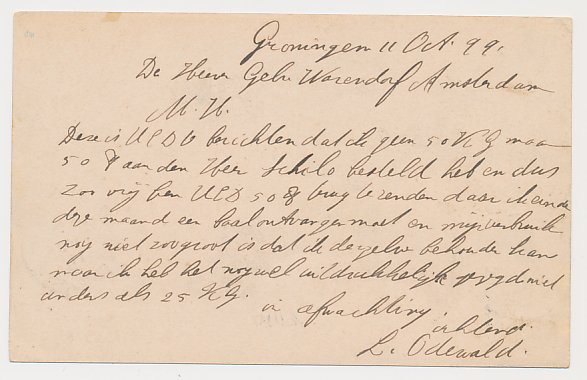 Groningen 11 Oct. 99.
De Heeren Gebr Warendorf Amsterdam
M. H.
Deze is UED te berichten dat ik geen 50 KG maar
50 ℔ aan den Heer Schilo besteld heb en dus
zoo vrij ben UED 50 ℔ terug te zenden daar ik einde
deze maand een baal ontvangen moet en mijn verbruik
nog niet zoo groot is dat ik dezelve behouden kan
maar ik heb het nog wel uitdrukkelijk gezegd niet
anders als 25 KG.
in afwachting
achtend.
L. Odewald.